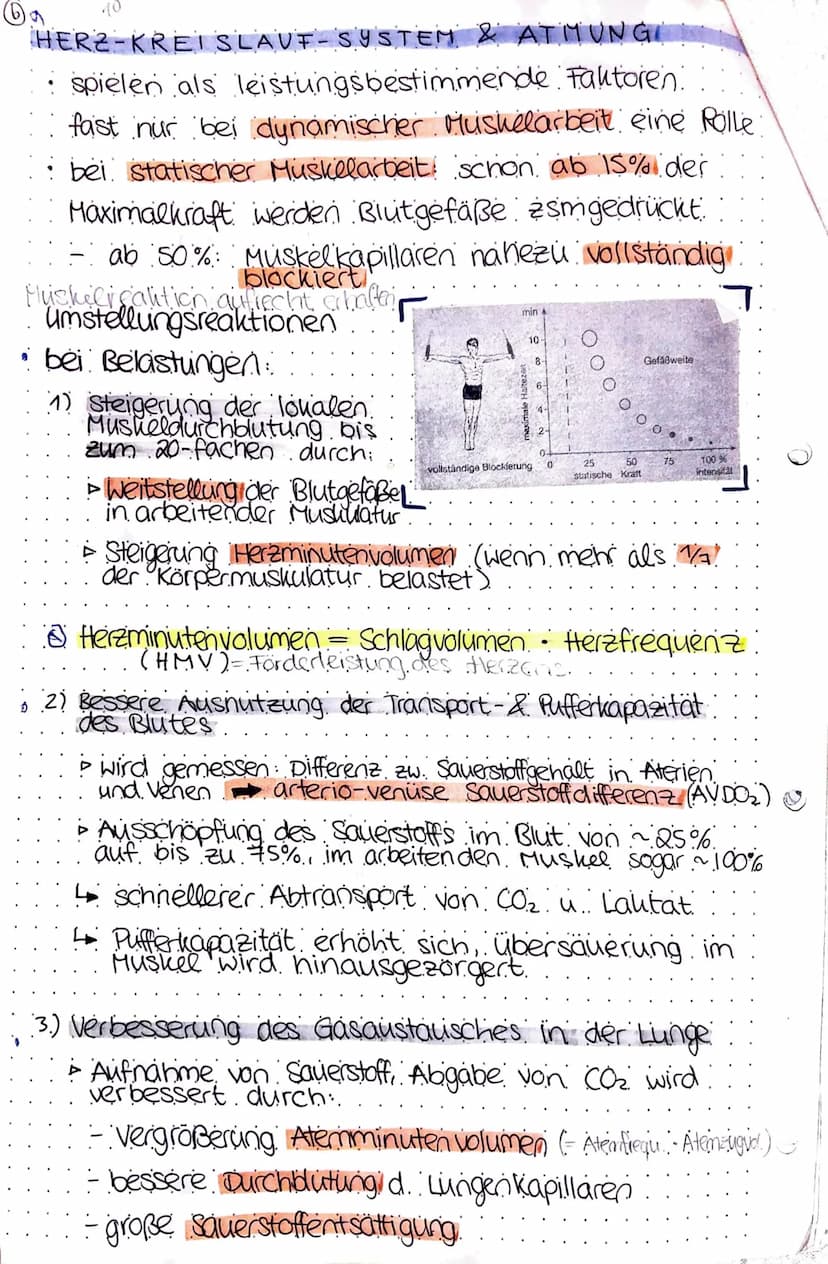 6
HERZ-KREISLAUF-SYSTEM & ATMUNG
• spielen als leistungsbestimmende Faktoren
fast nur bei dynamischer Muskelarbeit eine Rolle
• bei statischer Muskelarbeit: schon ab 15% der
Maximalkraft werden Blutgefäße zsmgedrückt
- ab 50%: Muskelkapillaren nahezu vollständig
blockiert
Muskelreaktion aufrecht erhalten
Umstellungsreaktionen
• bei Belastungen:
1) Steigerung der lokalen
Muskeldurchblutung bis
zum 20-fachen durch:
▹ Weitstellung der Blutgefäße
in arbeitender Muskulatur
min
10
8
6
4
2
0
maximale Haltezeit
Gefäßweite
vollständige Blockierung
0 25 50 75 100 %
statische Kraft Intensität
▹ Steigerung Herzminutenvolumen (wenn mehr als 1/7
der Körpermuskulatur belastet)
Herzminutenvolumen = Schlagvolumen · Herzfrequenz
(HMV) = Förderleistung des Herzens
2) Bessere Ausnutzung der Transport- & Pufferkapazität
des Blutes
▹ wird gemessen: Differenz zw. Sauerstoffgehalt in Aterien
und Venen → arterio-venüse Sauerstoffdifferenz (AVDO₂)
▹ Ausschöpfung des Sauerstoffs im Blut von ~25%
auf bis zu 75%, im arbeitenden Muskel sogar ~100%
↳ schnellerer Abtransport von CO₂ u. Laktat
↳ Pufferkapazität erhöht sich, übersäuerung im
Muskel wird hinausgezörgert
3.) Verbesserung des Gasaustausches in der Lunge
▹ Aufnahme von Sauerstoff, Abgabe von CO₂ wird
verbessert durch:
- Vergrößerung Atemminutenvolumen (= Atemfrequ. · Atemzugvol.)
- bessere Durchblutung d. Lungenkapillaren
- große Sauerstoffentsättigung